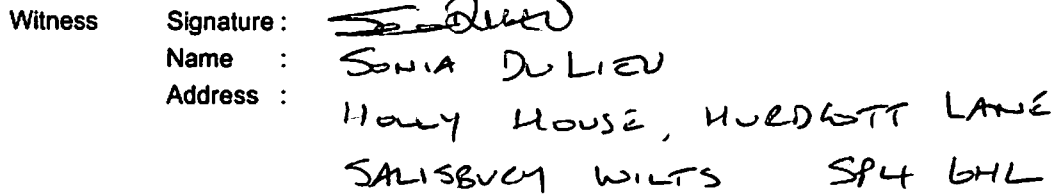 Witness Signature :
Name : SONIA DULIEU
Address :
HOLLY HOUSE, HURDCOTT LANE
SALISBURY WILTS SP4 6HL